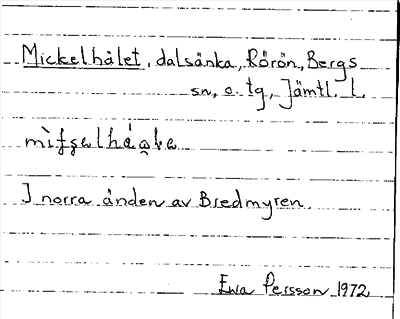 Mickelhålet, dalsänka, Rörön, Bergs
sn, o. tg, Jämtl. L.
I norra änden av Bredmyren.
Ewa Persson 1972